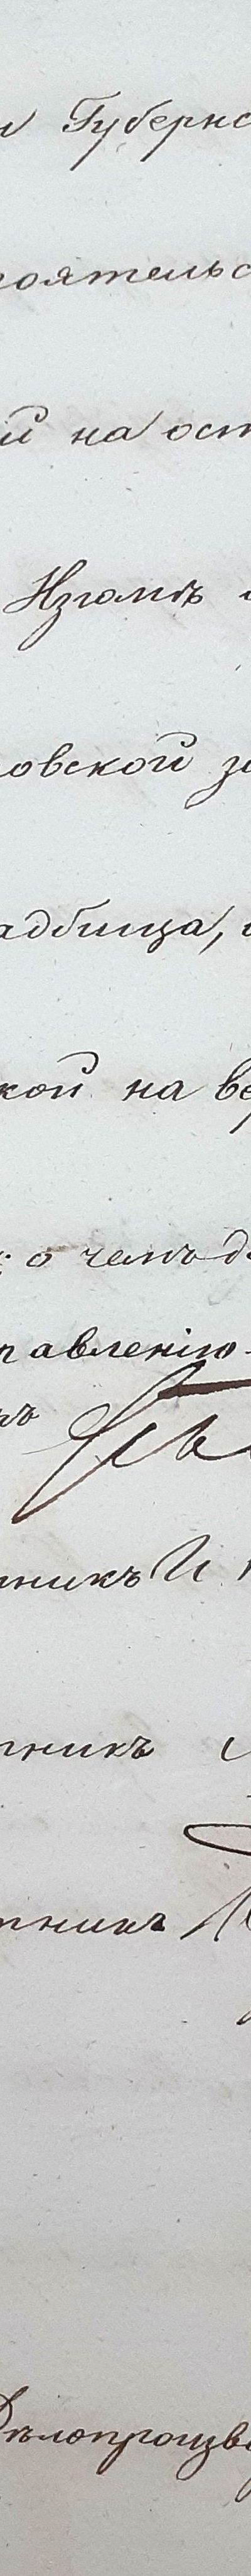 и Губернс
тоятельс
й на ост
Изюмъ
овской за
адбища,
кой на ве
о чемъ д
правленію
никъ И
тникъ
тникъ
Дѣлопроизво